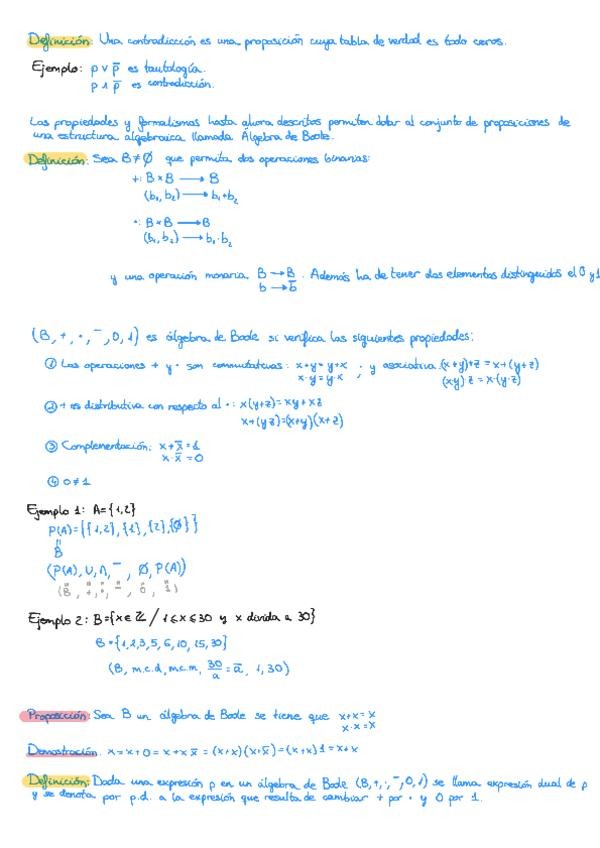 Definición: Una contradicción es una proposición cuya tabla de verdad es todo ceros.
Ejemplo: p ∨ p̅ es tautología.
p ∧ p̅ es contradicción.
Las propiedades y formalismos hasta ahora descritos permiten dotar al conjunto de proposiciones de
una estructura algebraica llamada Álgebra de Boole.
Definición: Sea B ≠ ∅ que permita dos operaciones binarias:
+: B × B → B
(b₁, b₂) → b₁+b₂
·: B × B → B
(b₁, b₂) → b₁·b₂
y una operación monaria B → B . Además ha de tener dos elementos distinguidos el 0 y 1
b → b̅
(B, +, ·, ¯, 0, 1) es álgebra de Boole si verifica las siguientes propiedades:
① Las operaciones + y · son conmutativas: x+y = y+x ; y asociativa (x+y)+z = x+(y+z)
x·y = y·x (xy)z = x·(y·z)
② + es distributiva con respecto al ·: x(y+z) = xy + xz
x+(yz) = (x+y)(x+z)
③ Complementación: x + x̅ = 1
x·x̅ = 0
④ 0 ≠ 1
Ejemplo 1: A = {1,2}
P(A) = {{1,2}, {1}, {2}, {∅}}
"
B
(P(A), ∪, ∩, ¯, ∅, P(A))
(B, +, ·, ¯, 0, 1)
Ejemplo 2: B = {x ∈ ℤ / 1 ≤ x ≤ 30 y x divida a 30}
B = {1,2,3,5,6,10,15,30}
(B, m.c.d, m.c.m, 30/a = a̅, 1, 30)
Proposición: Sea B un álgebra de Boole se tiene que x+x = x
x·x = x
Demostración: x = x+0 = x+xx̅ = (x+x)(x+x̅) = (x+x)1 = x+x
Definición: Dada una expresión p en un álgebra de Boole (B, +, ·, ¯, 0, 1) se llama expresión dual de p
y se denota por p.d. a la expresión que resulta de cambiar + por · y 0 por 1.